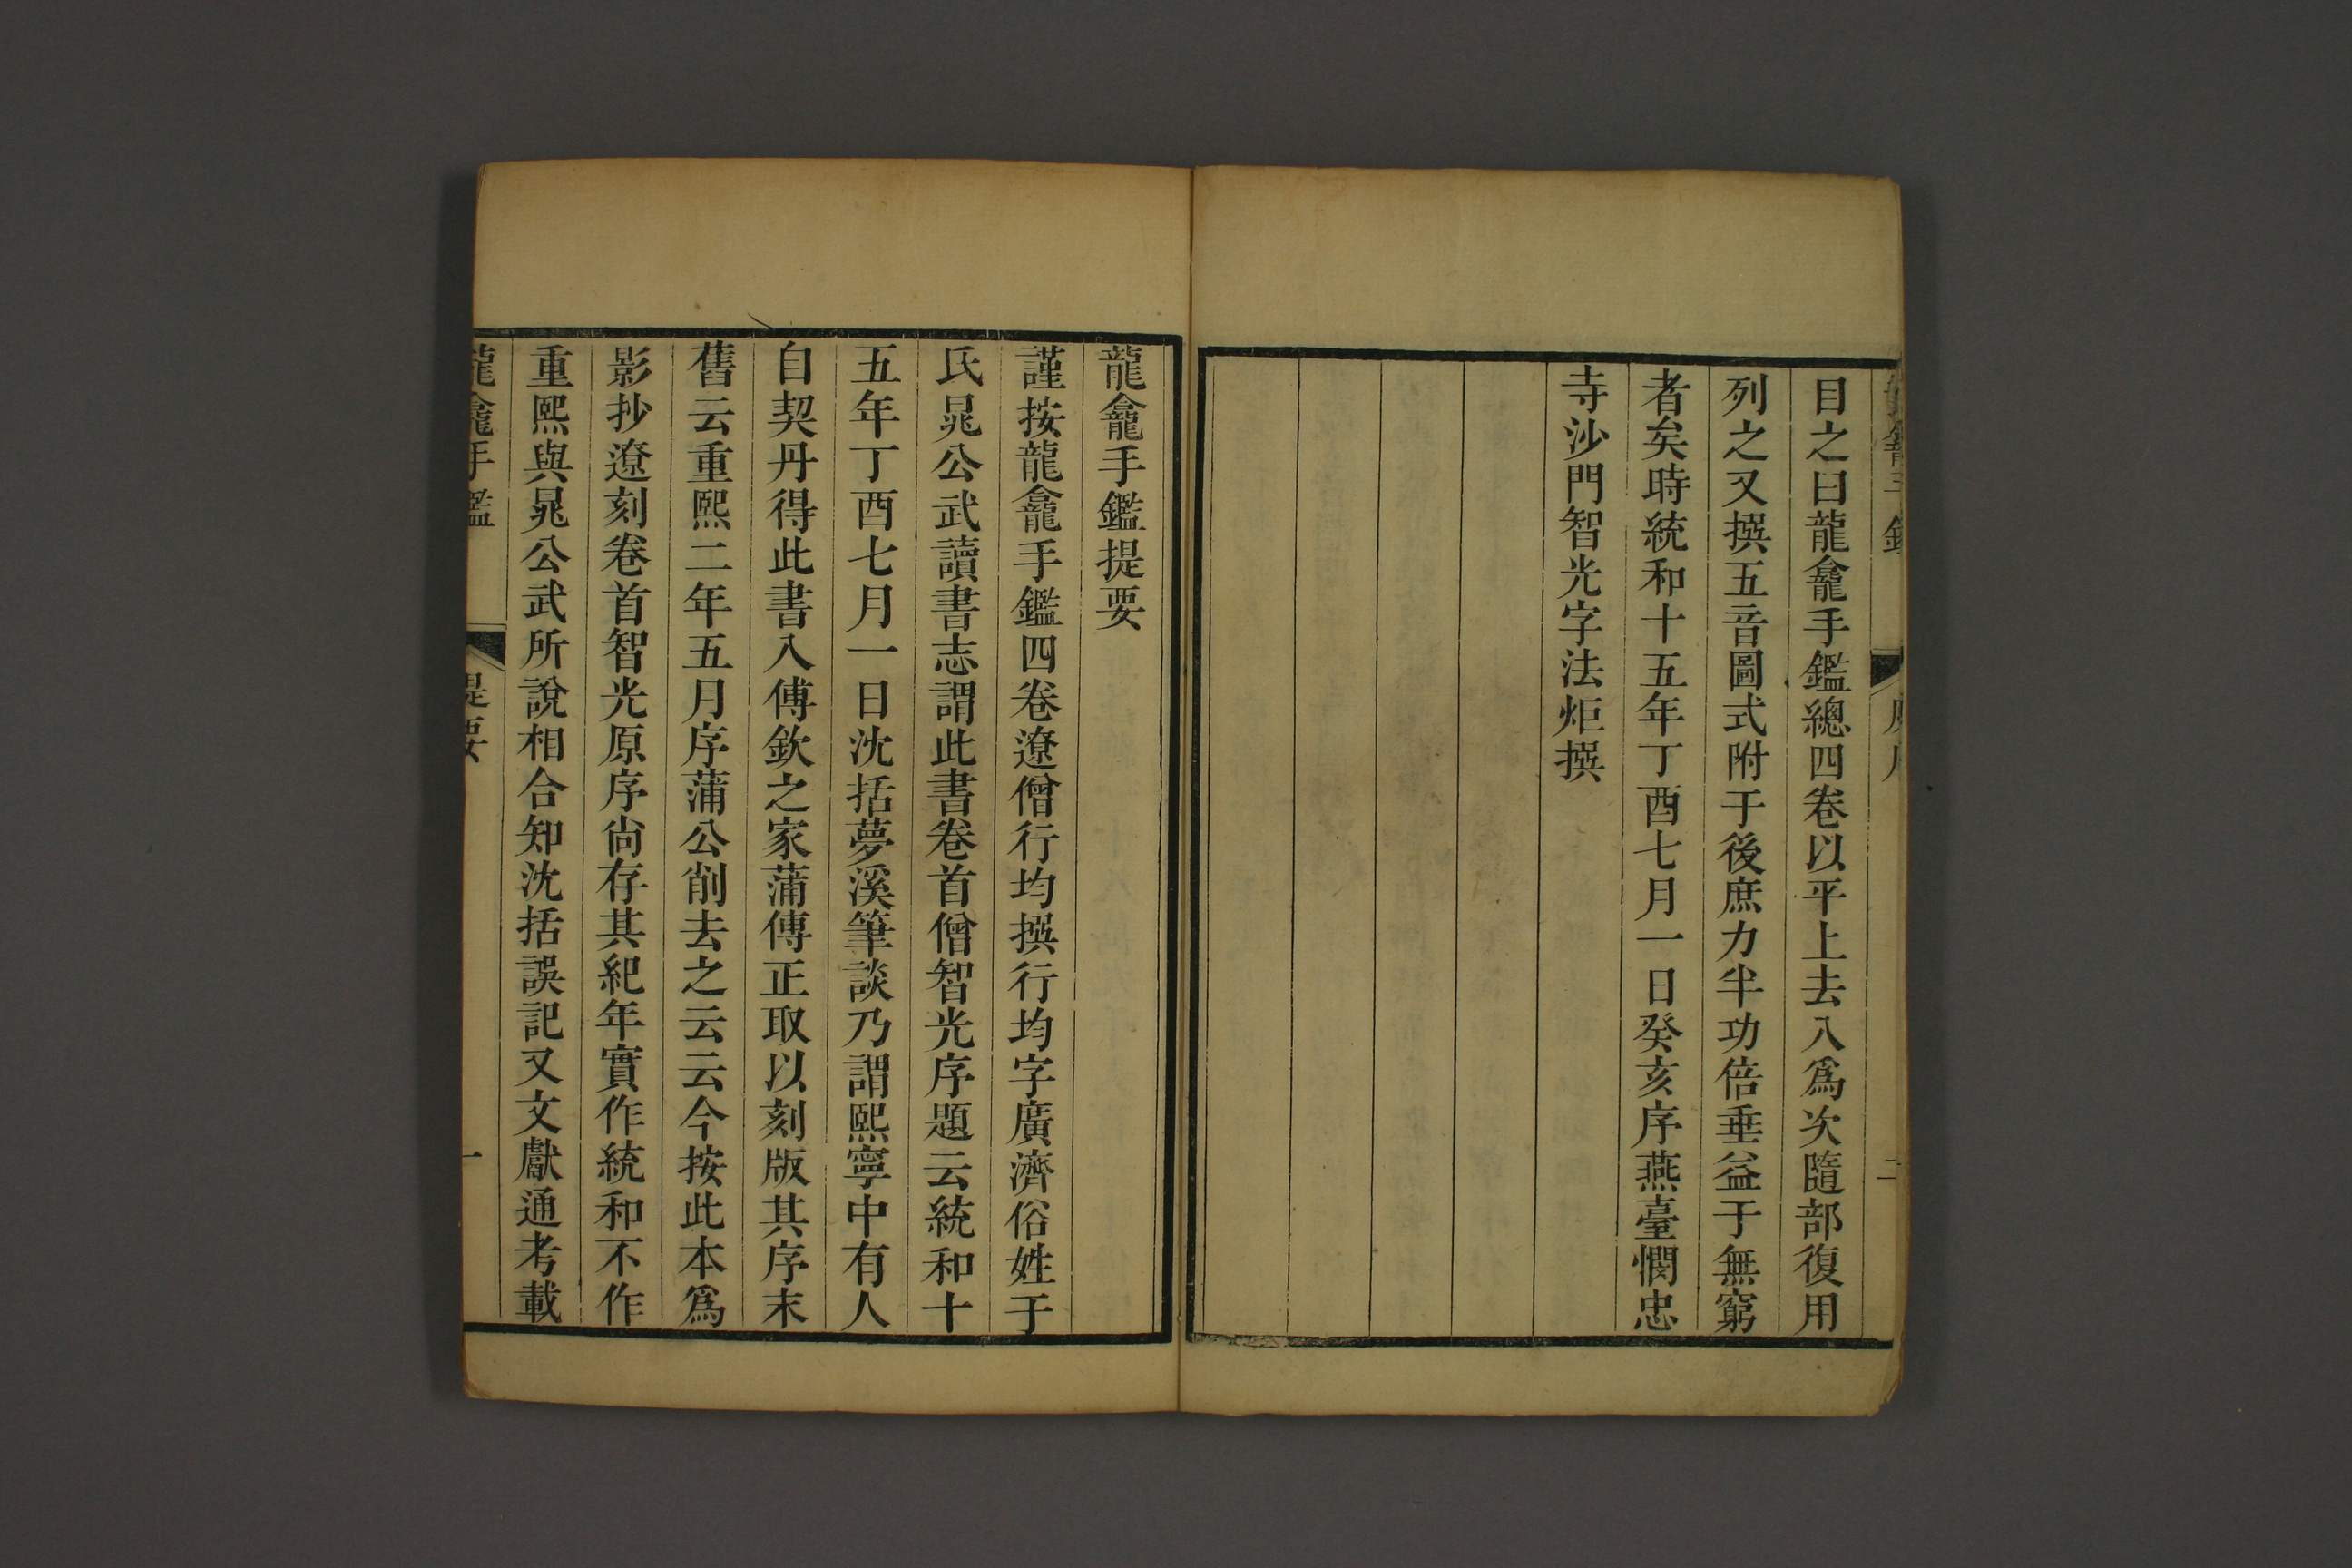 目之曰龍龕手鑑總四卷以平上去入爲次隨部復用
列之又撰五音圖式附于後庶力半功倍垂益于無窮
者矣時統和十五年丁酉七月一日癸亥序燕臺憫忠
寺沙門智光字法炬撰
龍龕手鑑提要
謹按龍龕手鑑四卷遼僧行均撰行均字廣濟俗姓于
氏晁公武讀書志謂此書卷首僧智光序題云統和十
五年丁酉七月一日沈括夢溪筆談乃謂熙寧中有人
自契丹得此書入傅欽之家蒲傳正取以刻版其序末
舊云重熙二年五月序蒲公削去之云云今按此本爲
影抄遼刻卷首智光原序尙存其紀年實作統和不作
重熙與晁公武所說相合知沈括誤記又文獻通考載
龍龕手鑑
提要
一